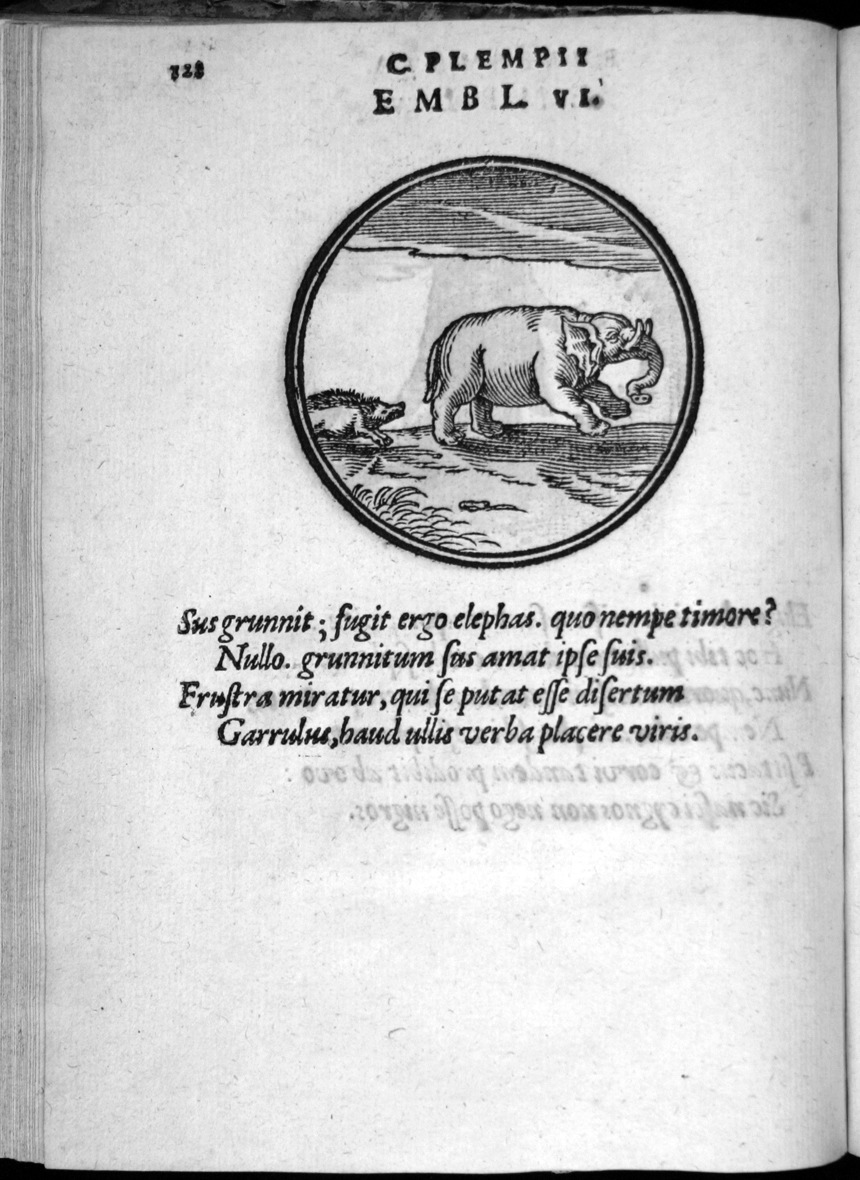 128
C. PLEMPII
EMBL. VI.
Sus grunnit; fugit ergo elephas. quo nempe timore?
Nullo. grunnitum ſus amat ipſe ſuis.
Fruſtra miratur, qui ſe putat eſſe diſertum
Garrulus, haud ullis verba placere viris.